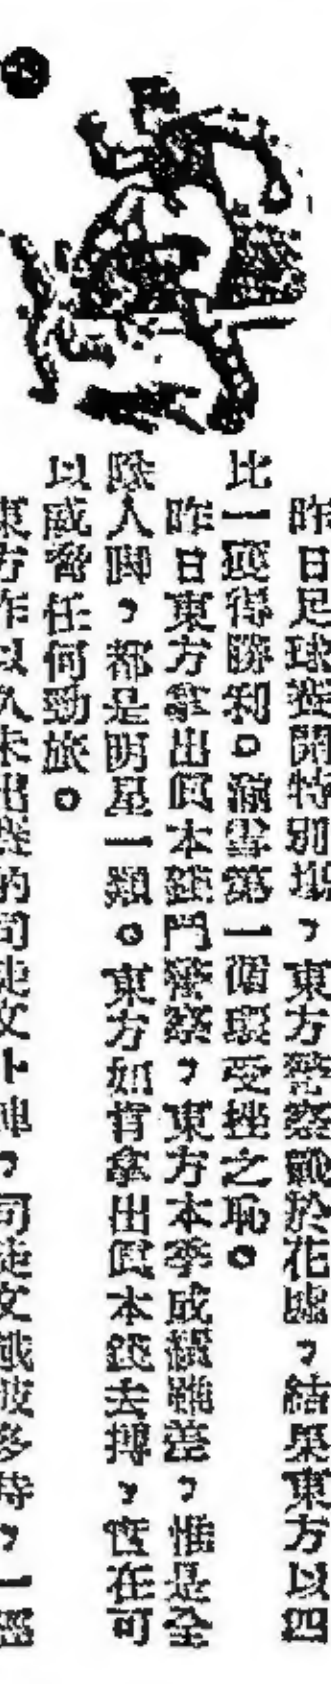 昨日足球塲開特別塲，東方警察戰於花墟，結果東方以四
比一獲得勝利。洗雪第一循環受挫之恥。
昨日東方拿出眞本錢鬥警察，東方本季成績雖差，惟是全
除人脚，都是明星一類。東方如肯拿出眞本錢去搏，實在可
以威脅任何勁旅。
東方昨以久未出塲的司徒文上陣，司徒文戰波多時，一經